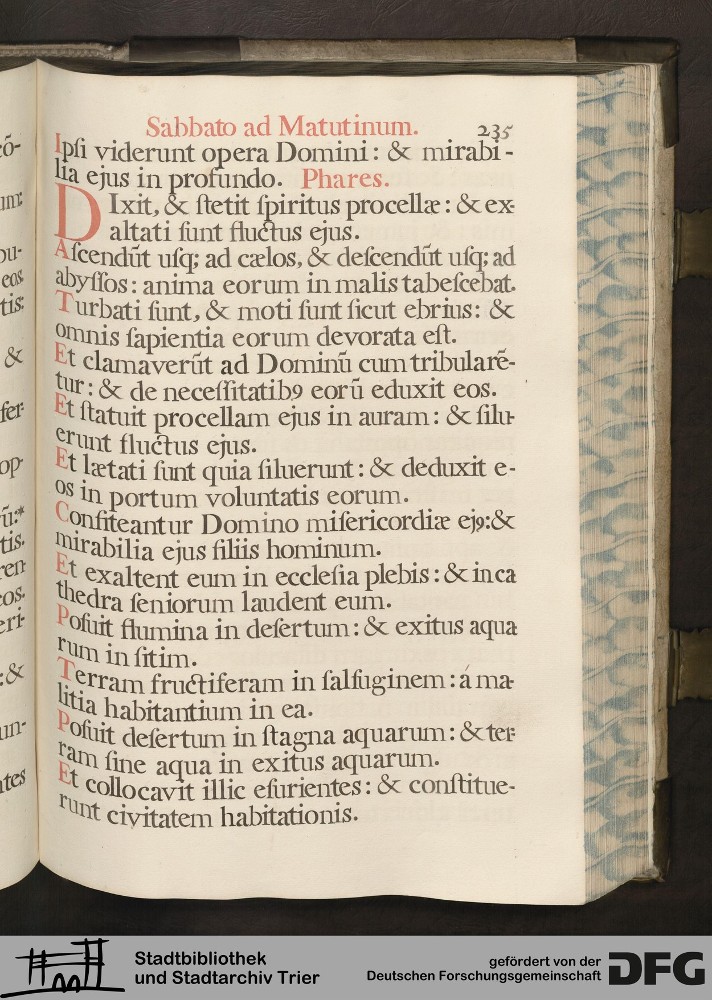 Sabbato ad Matutinum. 235
Ipſi viderunt opera Domini: & mirabi-
lia ejus in profundo. Phares.
DIxit, & ſtetit ſpiritus procellæ: & ex-
altati ſunt fluctus ejus.
Aſcendūt uſq; ad cælos, & deſcendūt uſq; ad
abyſſos: anima eorum in malis tabeſcebat.
Turbati ſunt, & moti ſunt ſicut ebrius: &
omnis ſapientia eorum devorata eſt.
Et clamaverūt ad Dominū cum tribularē-
tur: & de neceſſitatib9 eorū eduxit eos.
Et ſtatuit procellam ejus in auram: & ſilu-
erunt fluctus ejus.
Et lætati ſunt quia ſiluerunt: & deduxit e-
os in portum voluntatis eorum.
Confiteantur Domino miſericordiæ ej9: &
mirabilia ejus filiis hominum.
Et exaltent eum in eccleſia plebis: & in ca
thedra ſeniorum laudent eum.
Poſuit flumina in deſertum: & exitus aqua
rum in ſitim.
Terram fructiferam in ſalſuginem: á ma-
litia habitantium in ea.
Poſuit deſertum in ſtagna aquarum: & ter-
ram ſine aqua in exitus aquarum.
Et collocavit illic eſurientes: & conſtitue-
runt civitatem habitationis.
Stadtbibliothek
und Stadtarchiv Trier
gefördert von der
Deutschen Forschungsgemeinschaft
DFG